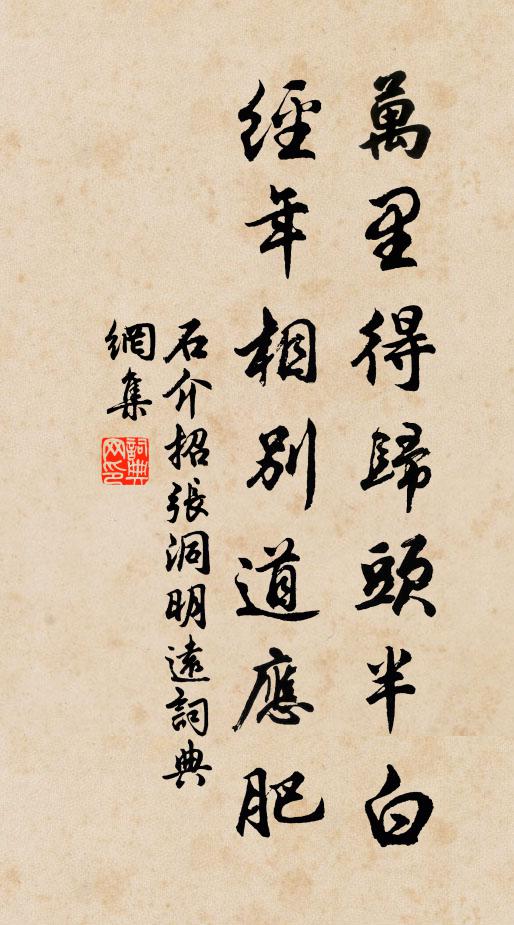 萬里得歸頭半白
經年相別道應肥
石介招張洞明遠詞典
網集
詞典網印